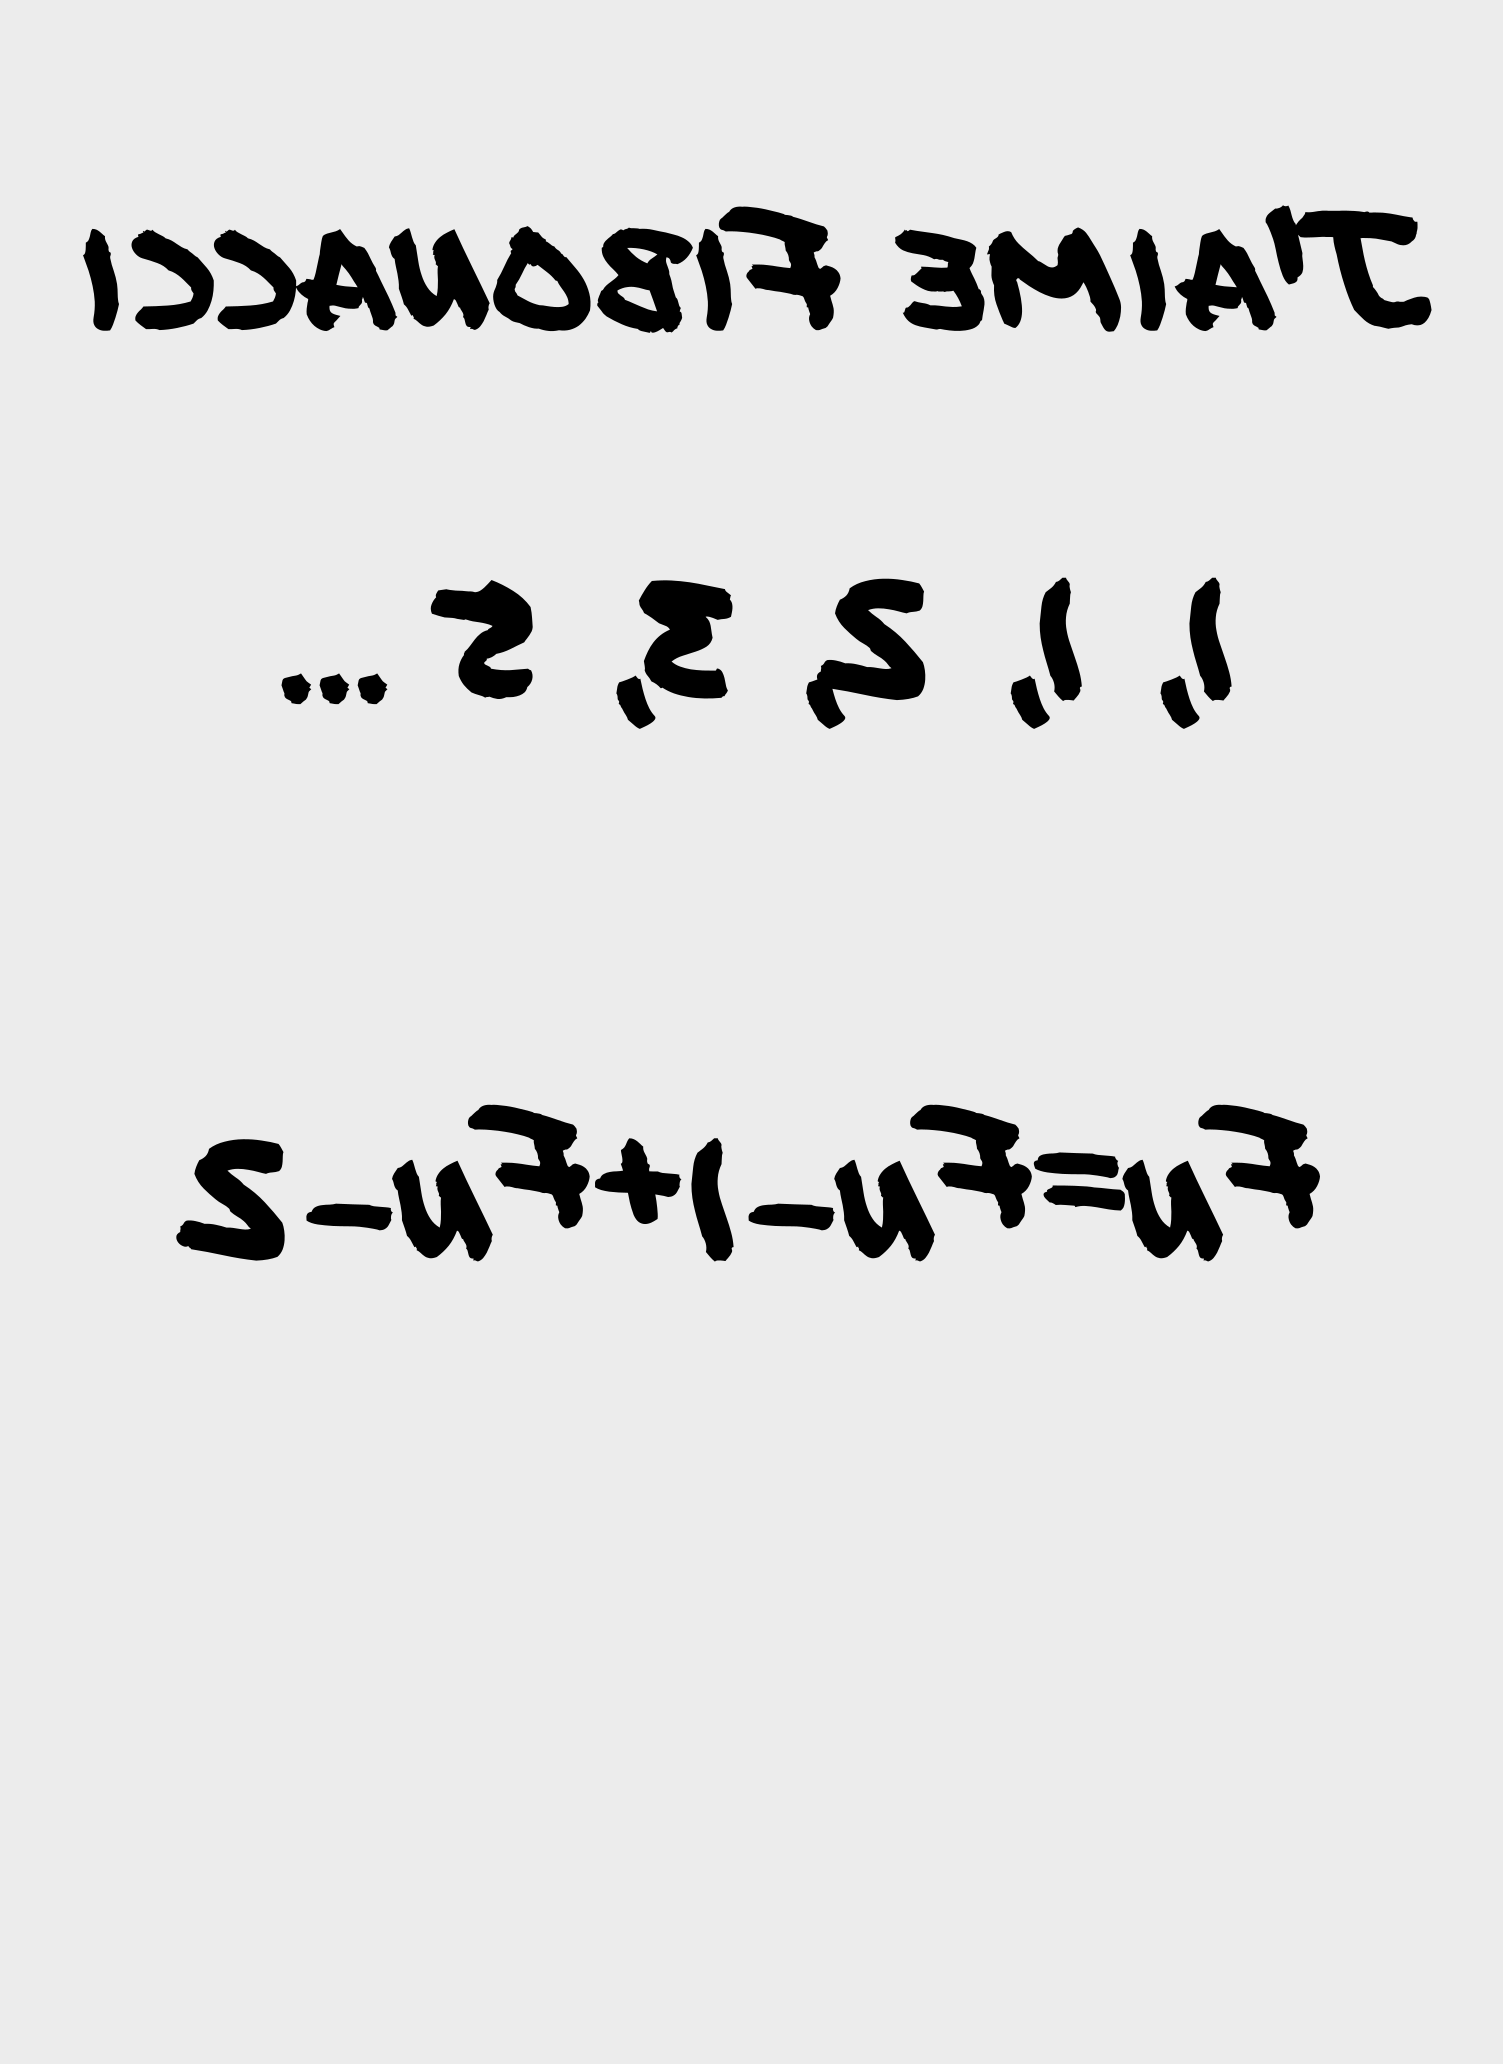 J'AIME FIBONACCI
1, 1, 2, 3, 5 ...
Fn=Fn-1+Fn-2